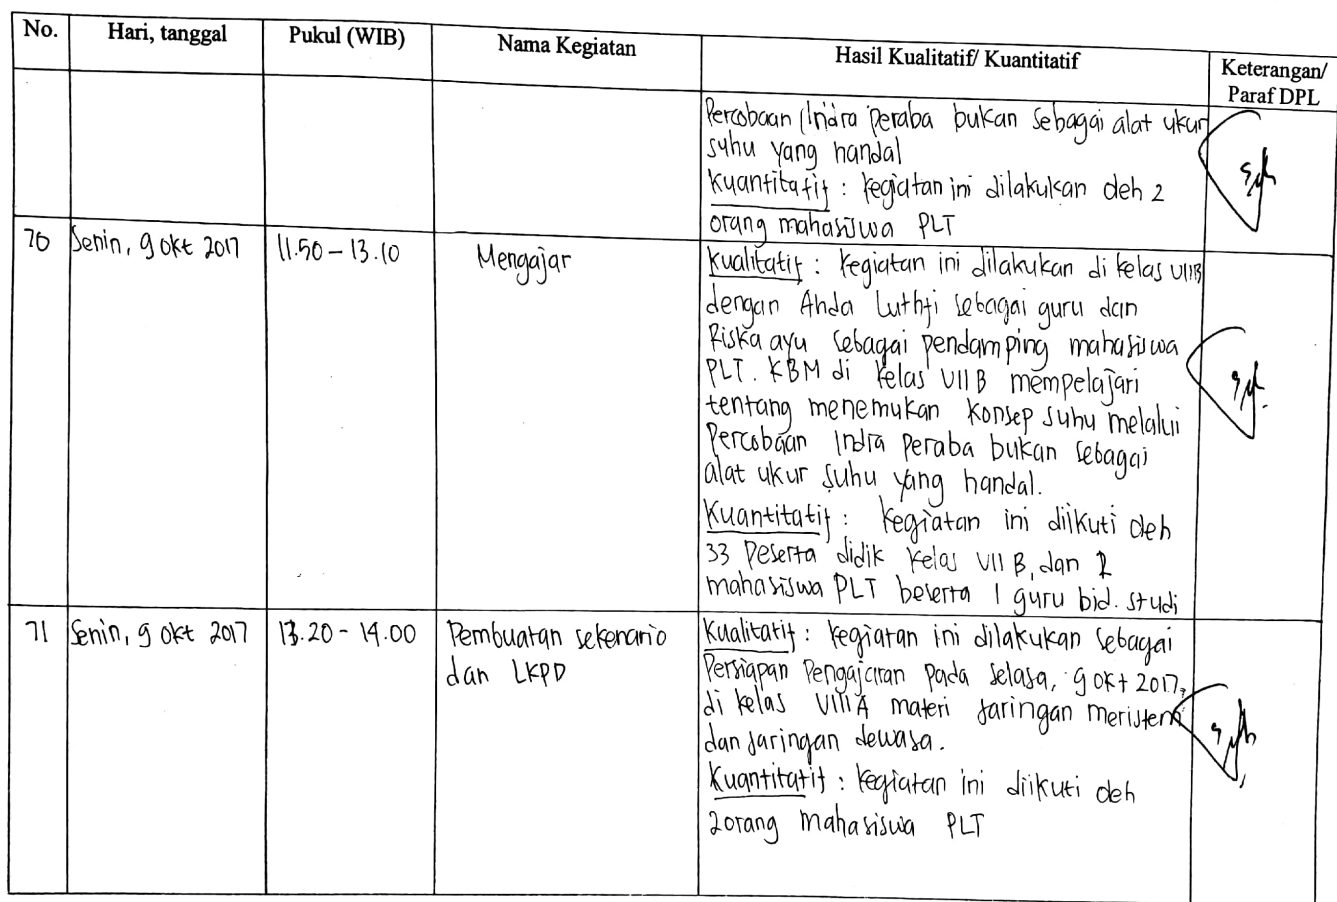 No.
Hari, tanggal
Pukul (WIB)
Nama Kegiatan
Hasil Kualitatif/ Kuantitatif
Keterangan/
Paraf DPL
Percobaan (Indra Peraba bukan sebagai alat ukur
suhu yang handal
Kuantitatif : kegiatan ini dilakukan oleh 2
orang mahasiswa PLT
70
Senin, 9 Okt 2017
11.50 – 13.10
Mengajar
Kualitatif : kegiatan ini dilakukan di kelas VIIB
dengan Ahda Luthfi sebagai guru dan
Riska ayu sebagai pendamping mahasiswa
PLT. KBM di kelas VII B mempelajari
tentang menemukan konsep suhu melalui
Percobaan Indra Peraba bukan sebagai
alat ukur suhu yang handal.
Kuantitatif : kegiatan ini diikuti oleh
33 Peserta didik kelas VII B, dan 2
mahasiswa PLT beserta 1 guru bid. studi
71
Senin, 9 Okt 2017
13.20 - 14.00
Pembuatan sekenario
dan LKPD
Kualitatif : kegiatan ini dilakukan sebagai
Persiapan Pengajaran pada selasa, 9 okt 2017,
di kelas VIII A materi Jaringan meristem
dan Jaringan dewasa.
Kuantitatif : kegiatan ini diikuti oleh
2 orang mahasiswa PLT